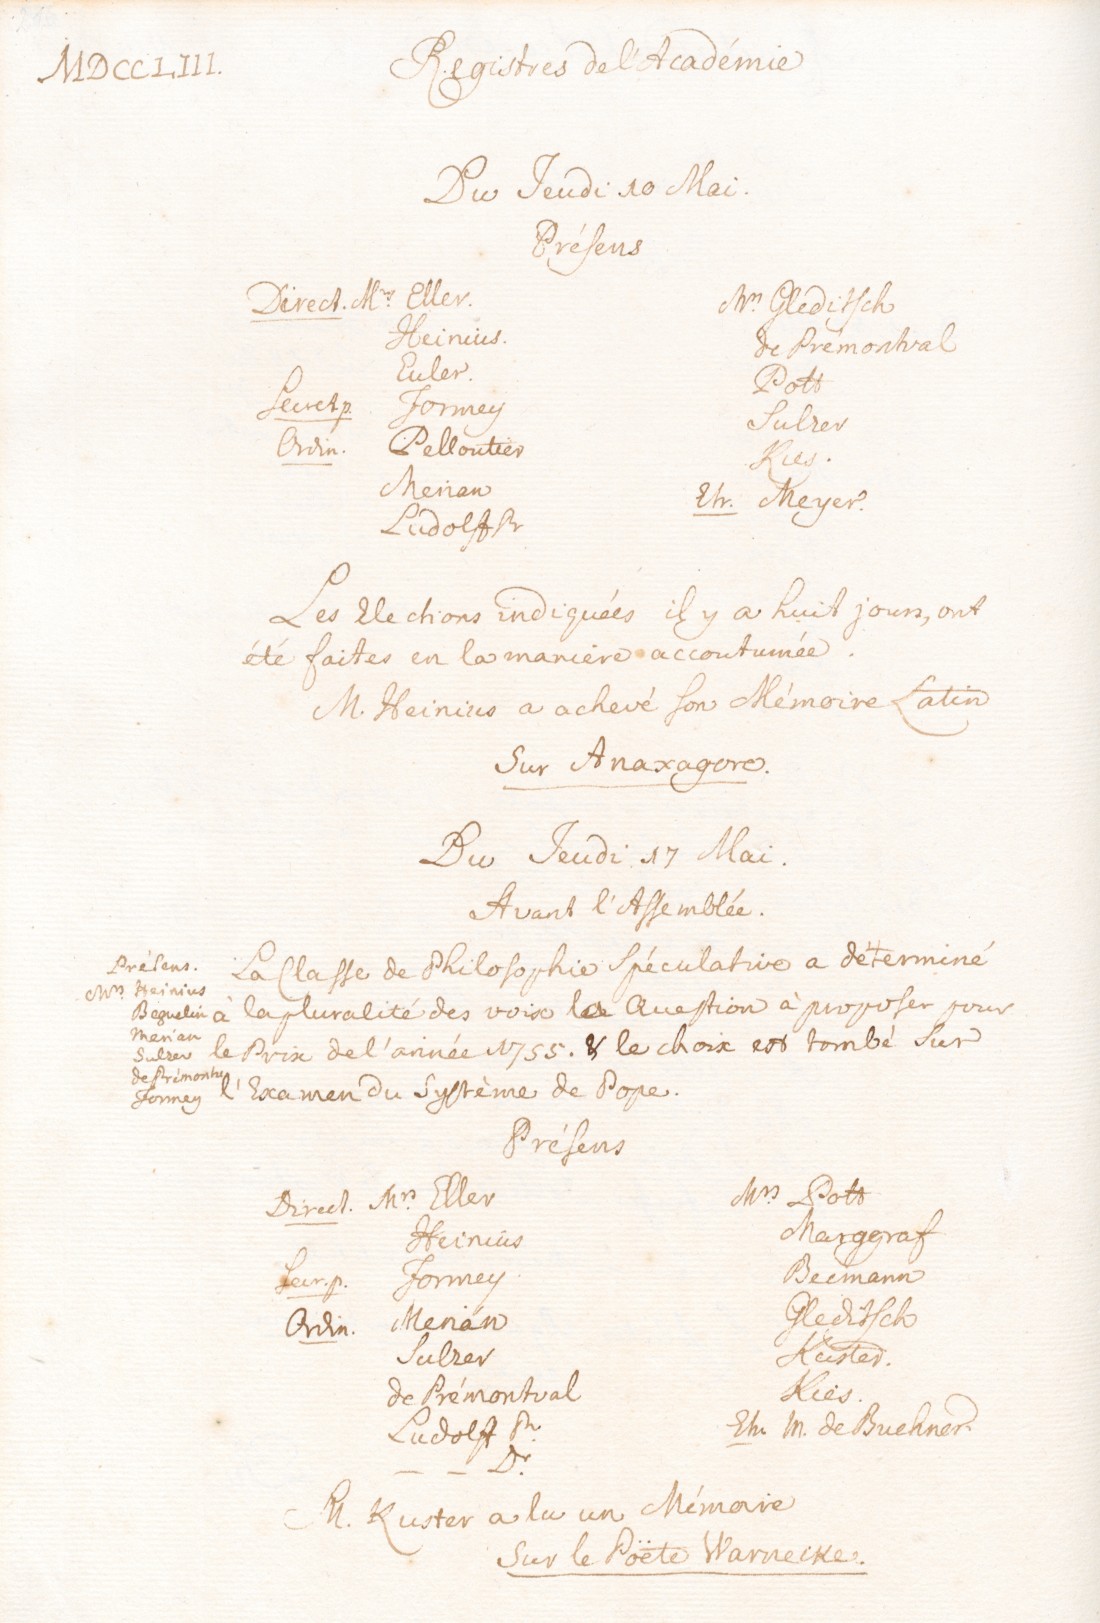 MDCCLIII.
Registres de l'Académie
Du Jeudi 10 Mai.
Présens
Direct. Mrs Eller.
Heinius.
Euler.
Secret. p. Formey
Ordin. Pelloutier
Merian
Ludolff Pr
Mrs Gleditsch
de Prémontval
Pott
Sulzer
Kies.
Etr. Meyer.
Les Elections indiquées il y a huit jours, ont
été faites en la maniére accoutumée.
M. Heinius a achevé son Mémoire Latin
Sur Anaxagore.
Du Jeudi 17 Mai.
Avant l'Assemblée.
Présens.
Mrs Heinius
Beguelin
Merian
Sulzer
de Prémontv
Formey
La Classe de Philosophie Spéculative a déterminé
à la pluralité des voix la Question à proposer pour
le Prix de l'année 1755. & le choix est tombé Sur
l'Examen du Système de Pope.
Présens
Direct. Mrs Eller
Heinius
Secr. p. Formey
Ordin. Merian
Sulzer
de Prémontval
Ludolff Pr.
— — Dr.
Mrs Pott
Marggraf
Becmann
Gleditsch
Küster.
Kies.
Etr. M. de Buchner
M. Kuster a lu un Mémoire
Sur le Poëte Warnecke.